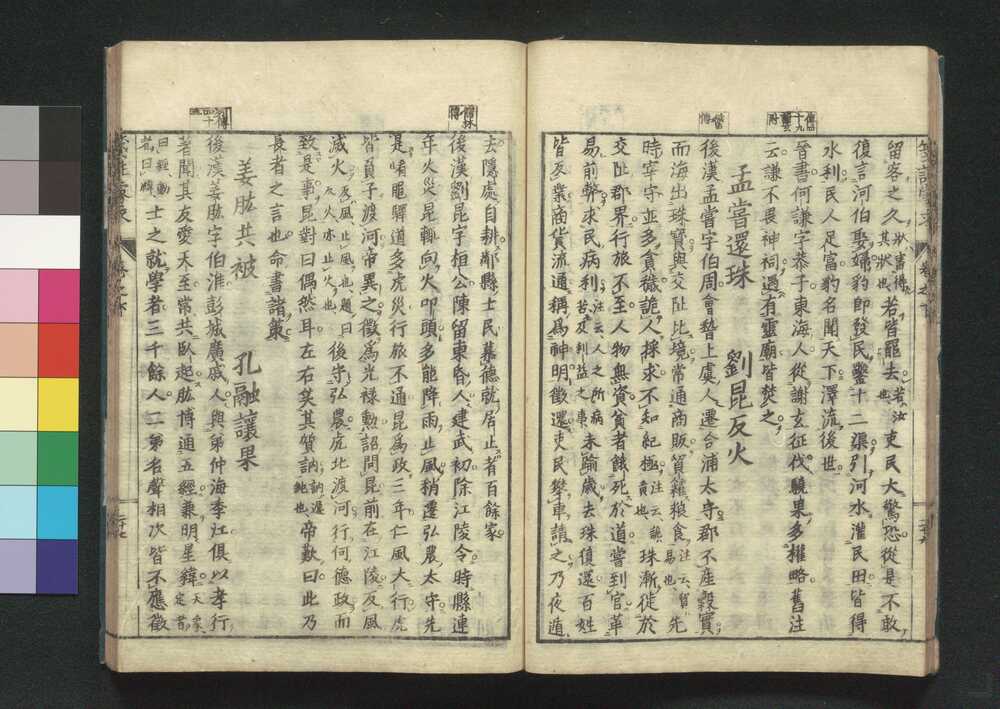 留客之久
若皆罷去
吏民大驚恐從是不敢
復言河伯娶婦豹即發民鑿十二渠引河水灌民田皆得
水利民人足富豹名聞天下澤流後世
晉書何謙字恭子東海人從謝玄征伐驍果多權略舊注
云謙不畏神祠過有靈廟皆焚之
孟嘗還珠 劉昆反火
後漢孟嘗字伯周會稽上虞人遷合浦太守郡不産穀實
而海出珠寶與交阯比境常通商販貿糴粮食
先
時宰守並多貪穢詭人採求不知紀極
珠漸徙於
交阯郡界行旅不至人物無資貧者餓死於道嘗到官革
易前弊求民病利
未踰歳去珠復還百姓
皆反業商貨流通稱爲神明徴還吏民攀車請之乃夜遁
去隱處自耕鄰縣士民慕德就居止者百餘家
後漢劉昆字桓公陳留東昏人建武初除江陵令時縣連
年火災昆輙向火叩頭多能降雨止風稍遷弘農太守先
是崤黽驛道多虎災行旅不通昆爲政三年仁風大行虎
皆負子渡河帝異之徴爲光禄勲詔問昆前在江陵反風
滅火
後守弘農虎北渡河行何德政而
致是事昆對曰偶然耳左右笑其質訥
帝歎曰此乃
長者之言也命書諸策
姜肱共被 孔融讓果
後漢姜肱字伯淮彭城廣戚人與弟仲海季江倶以孝行
著聞其友愛天至常共臥起肱博通五經兼明星緯
士之就學者三千餘人二弟名聲相次皆不應徴